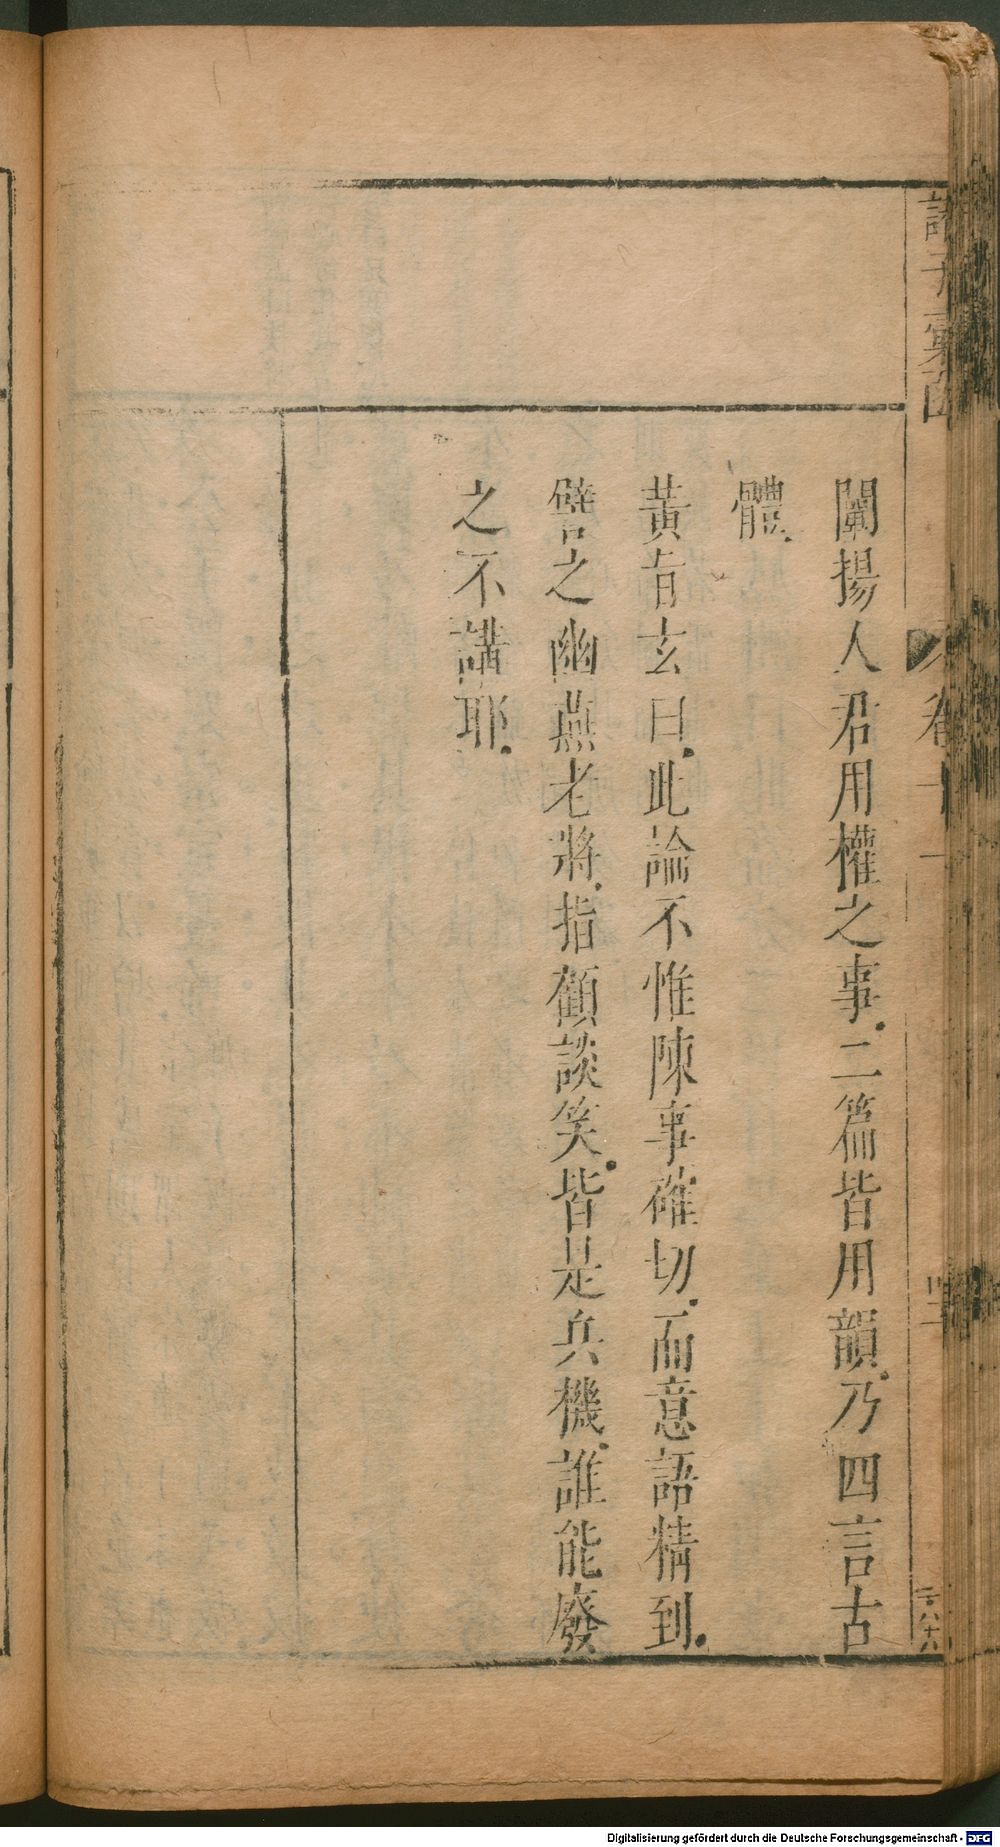 闡揚人君用權之事．二篇皆用韻．乃四言古
體．
黃省玄曰．此論不惟陳事確切．而意語精到．
譬之幽燕老將．指顧談笑．皆是兵機．誰能廢
之不講耶．
諸子彙函
卷十一
Digitalisierung gefördert durch die Deutsche Forschungsgemeinschaft - DFG